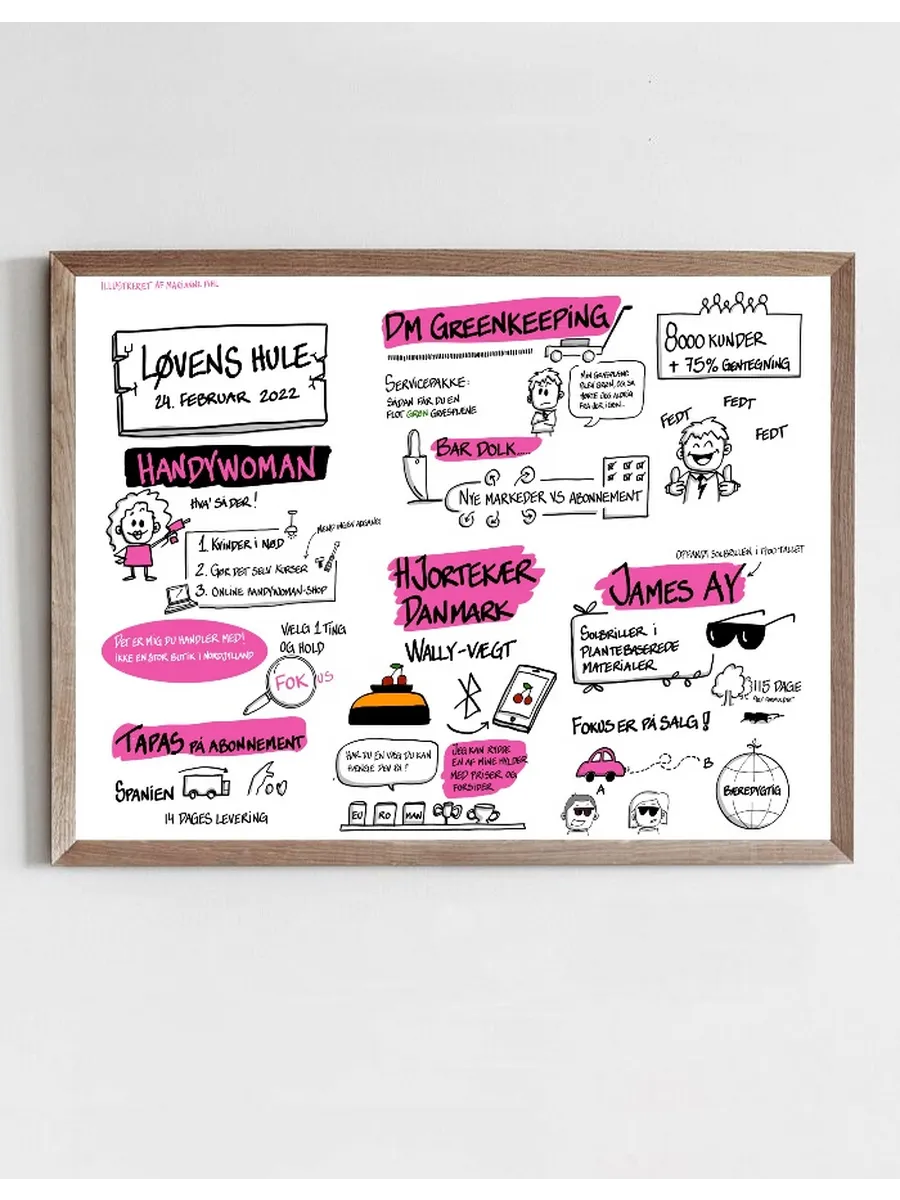 ILLUSTRERET AF MARIANNE
LØVENS HULE
24. FEBRUAR 2022
HANDYWOMAN
HVA' SÅ DER!
MEND INGEN ADGANG!
1. KVINDER I NØD
2. GØR DET SELV KURSER
3. ONLINE HANDYWOMAN-SHOP
DET ER MIG DU HANDLER MED!
IKKE EN STOR BUTIK I NORDJYLLAND
VÆLG 1 TING
OG HOLD
FOKUS
TAPAS PÅ ABONNEMENT
SPANIEN
14 DAGES LEVERING
DM GREENKEEPING
SERVICEPAKKE:
SÅDAN FÅR DU EN
FLOT GRØN GRÆSPLÆNE
MIN GRÆSPLÆNE
BLEV GRØN, OG SÅ
HØRTE JEG ALDRIG
FRA DER IGEN...
8000 KUNDER
+ 75% GENTEGNING
FEDT
FEDT
FEDT
BAR DOLK.....
NYE MARKEDER VS ABONNEMENT
HJORTEKÆR
DANMARK
WALLY-VÆGT
HAR DU EN VÆG DU KAN
HÆNGE DEN PÅ?
JEG KAN RYDDE
EN AF MINE HYLDER
MED PRISER OG
FORSIDER
EU
RO
MAN
OPFANDT SOLBRILLEN I 1700 TALLET
JAMES AY
SOLBRILLER I
PLANTEBASEREDE
MATERIALER
115 DAGE
FOKUS ER PÅ SALG!
A
B
BÆREDYGTIG